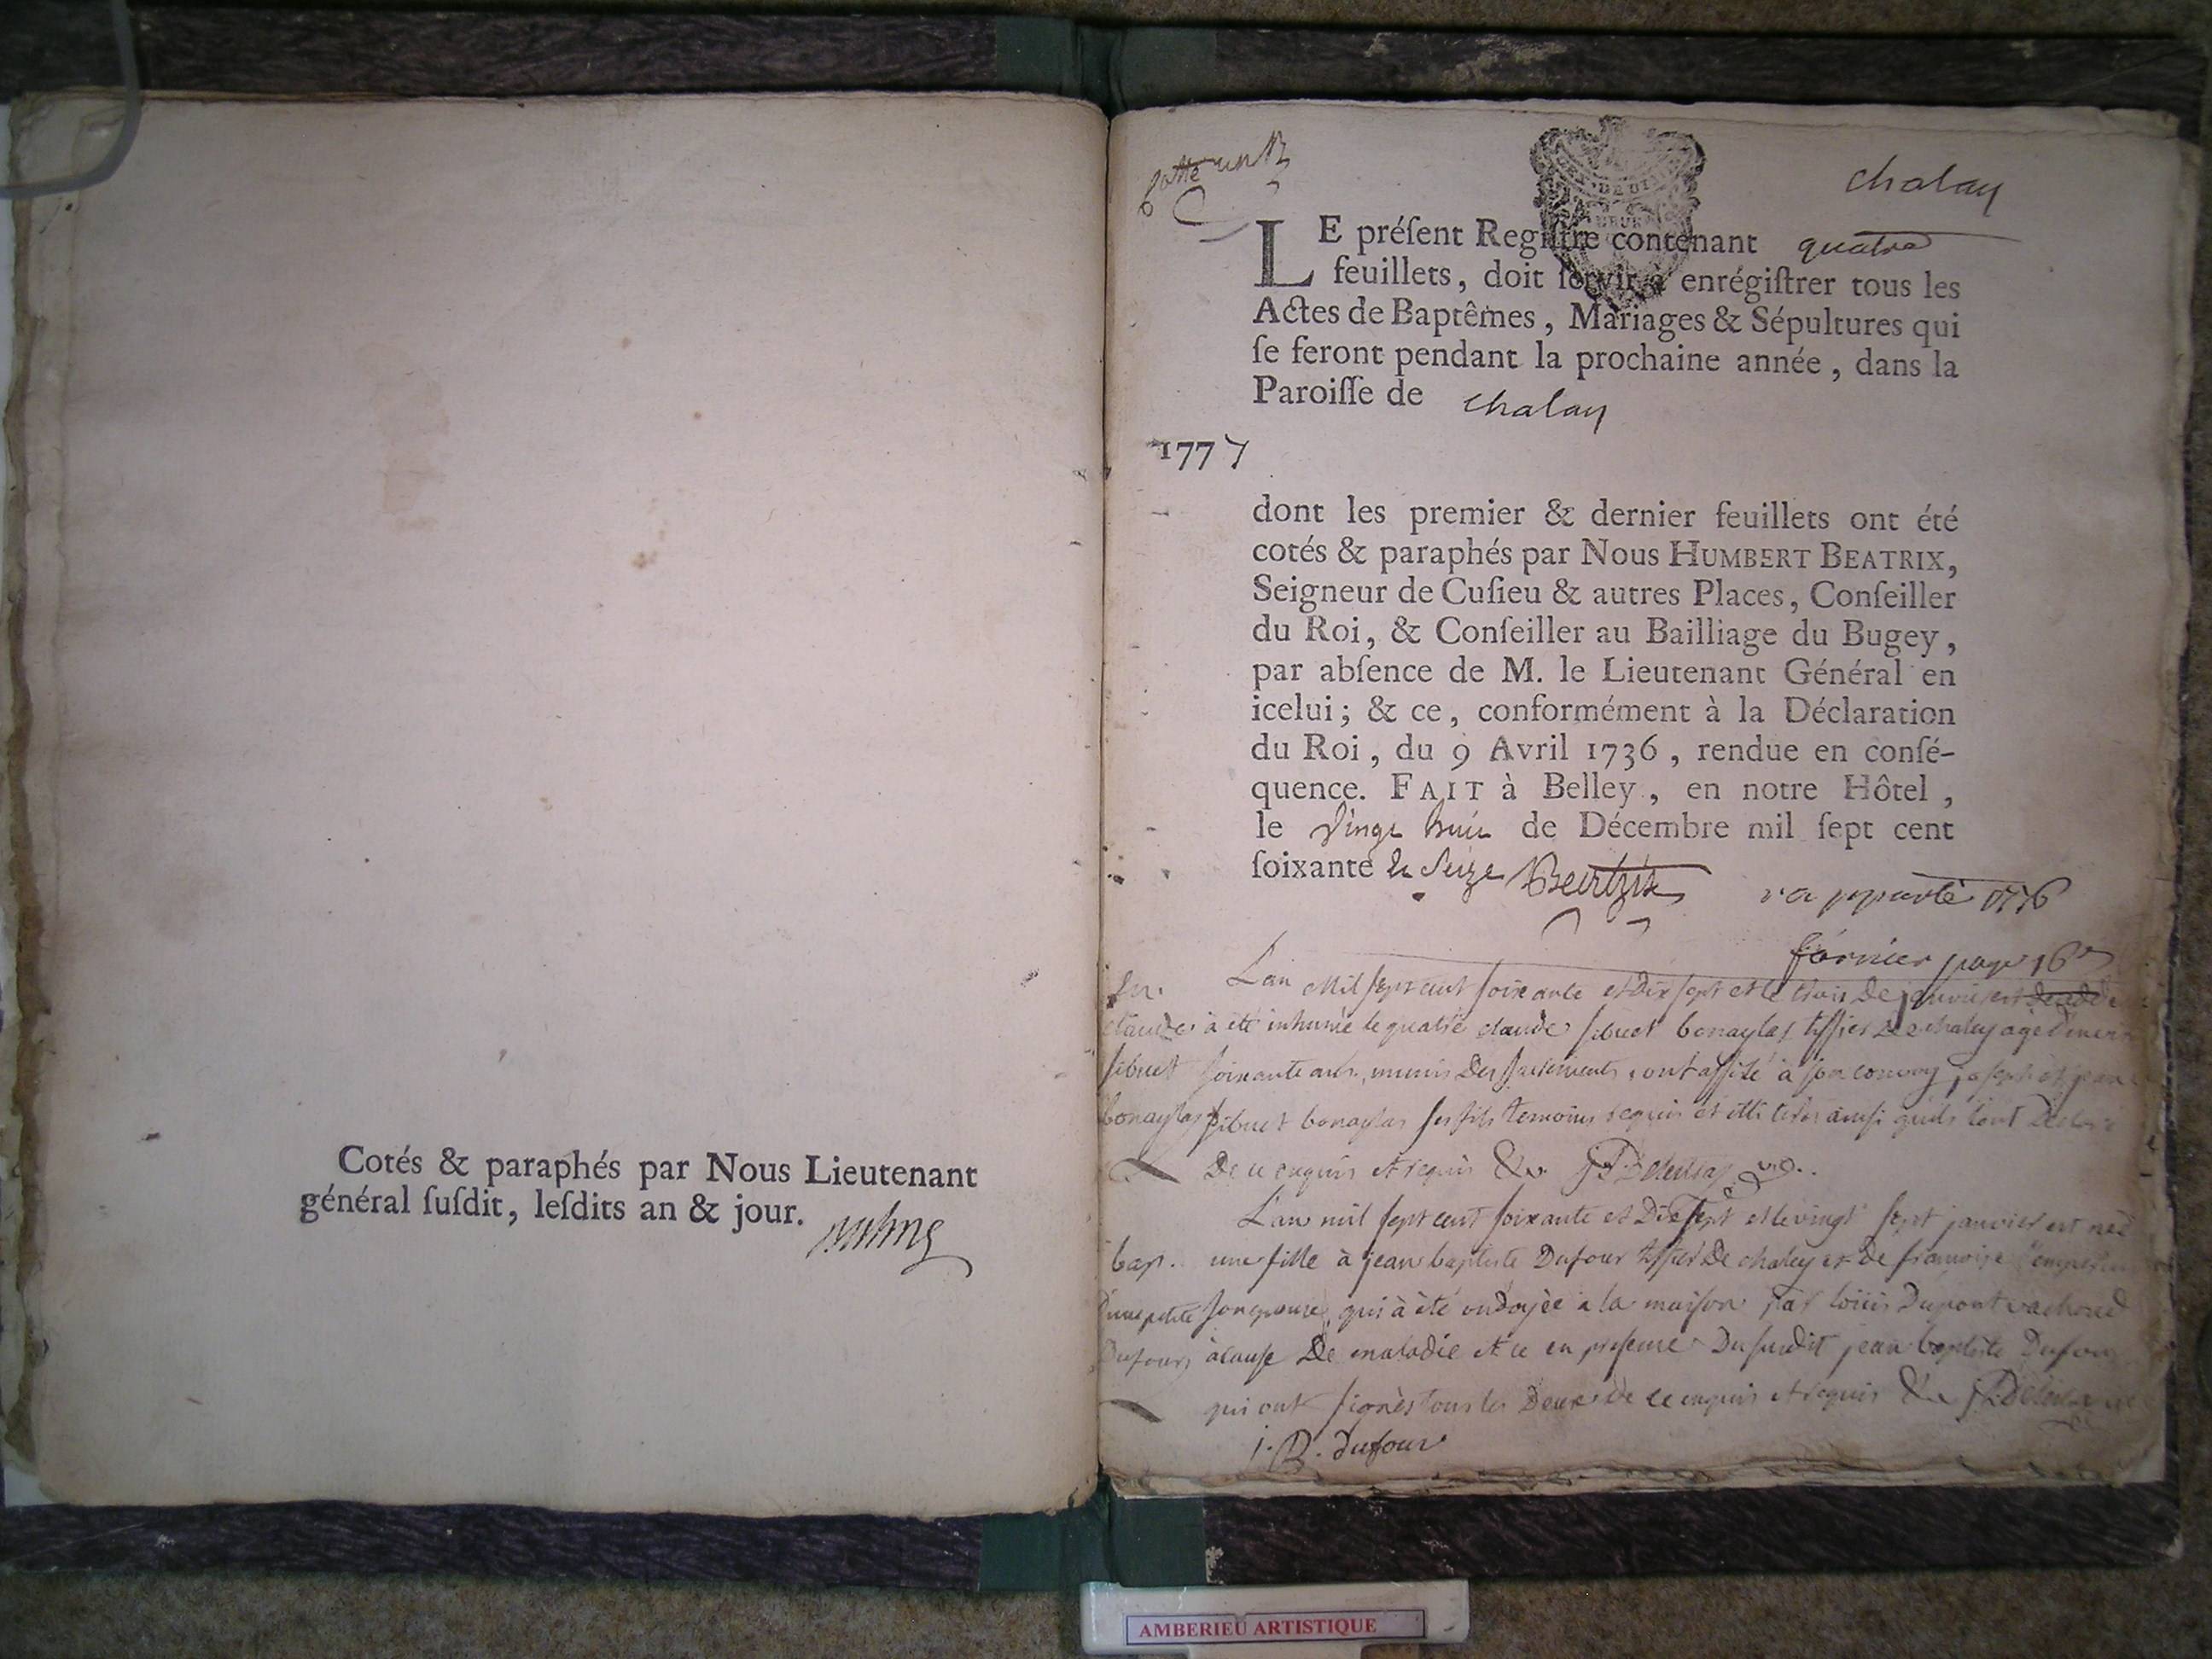 Cotés & paraphés par Nous Lieutenant
général ſuſdit, leſdits an & jour.
Cotte un
chalay
LE préſent Regiſtre contenant quatre
feuillets, doit ſervir à enrégiſtrer tous les
Actes de Baptêmes, Mariages & Sépultures qui
ſe feront pendant la prochaine année, dans la
Paroiſſe de chalay
1777
dont les premier & dernier feuillets ont été
cotés & paraphés par Nous HUMBERT BEATRIX,
Seigneur de Cuſieu & autres Places, Conſeiller
du Roi, & Conſeiller au Bailliage du Bugey,
par abſence de M. le Lieutenant Général en
icelui; & ce, conformément à la Déclaration
du Roi, du 9 Avril 1736, rendue en conſé-
quence. FAIT à Belley, en notre Hôtel,
le Vingt huit de Décembre mil ſept cent
ſoixante & Seize Beatrix
1776
page 16
L'an Mil sept cent soixante et Dix sept et le trois De janvier est decede
claude à été inhumé le quatre claude sibuet bonaylas tissier De chaley agé
sibuet soixante ans, munis Des sacrements, ont assisté à son convoy joseph et jean
bonaylas sibuet bonaylas ses fils temoins requis et ainsi quils l'ont
De ce enquis et requis &c.
L'an mil sept cent soixante et Dix sept et le vingt sept janvier est née
bap. une fille à jean baptiste Dufour tissier De chaley et de françoise
petite son epouse, qui à été ondoyée a la maison par loüis Dupont
Dufour, acause De maladie et ce en presence Du susdit jean baptiste Dufour
qui ont signés tous les Deux de ce enquis et requis &c
j. B. dufour
AMBERIEU ARTISTIQUE